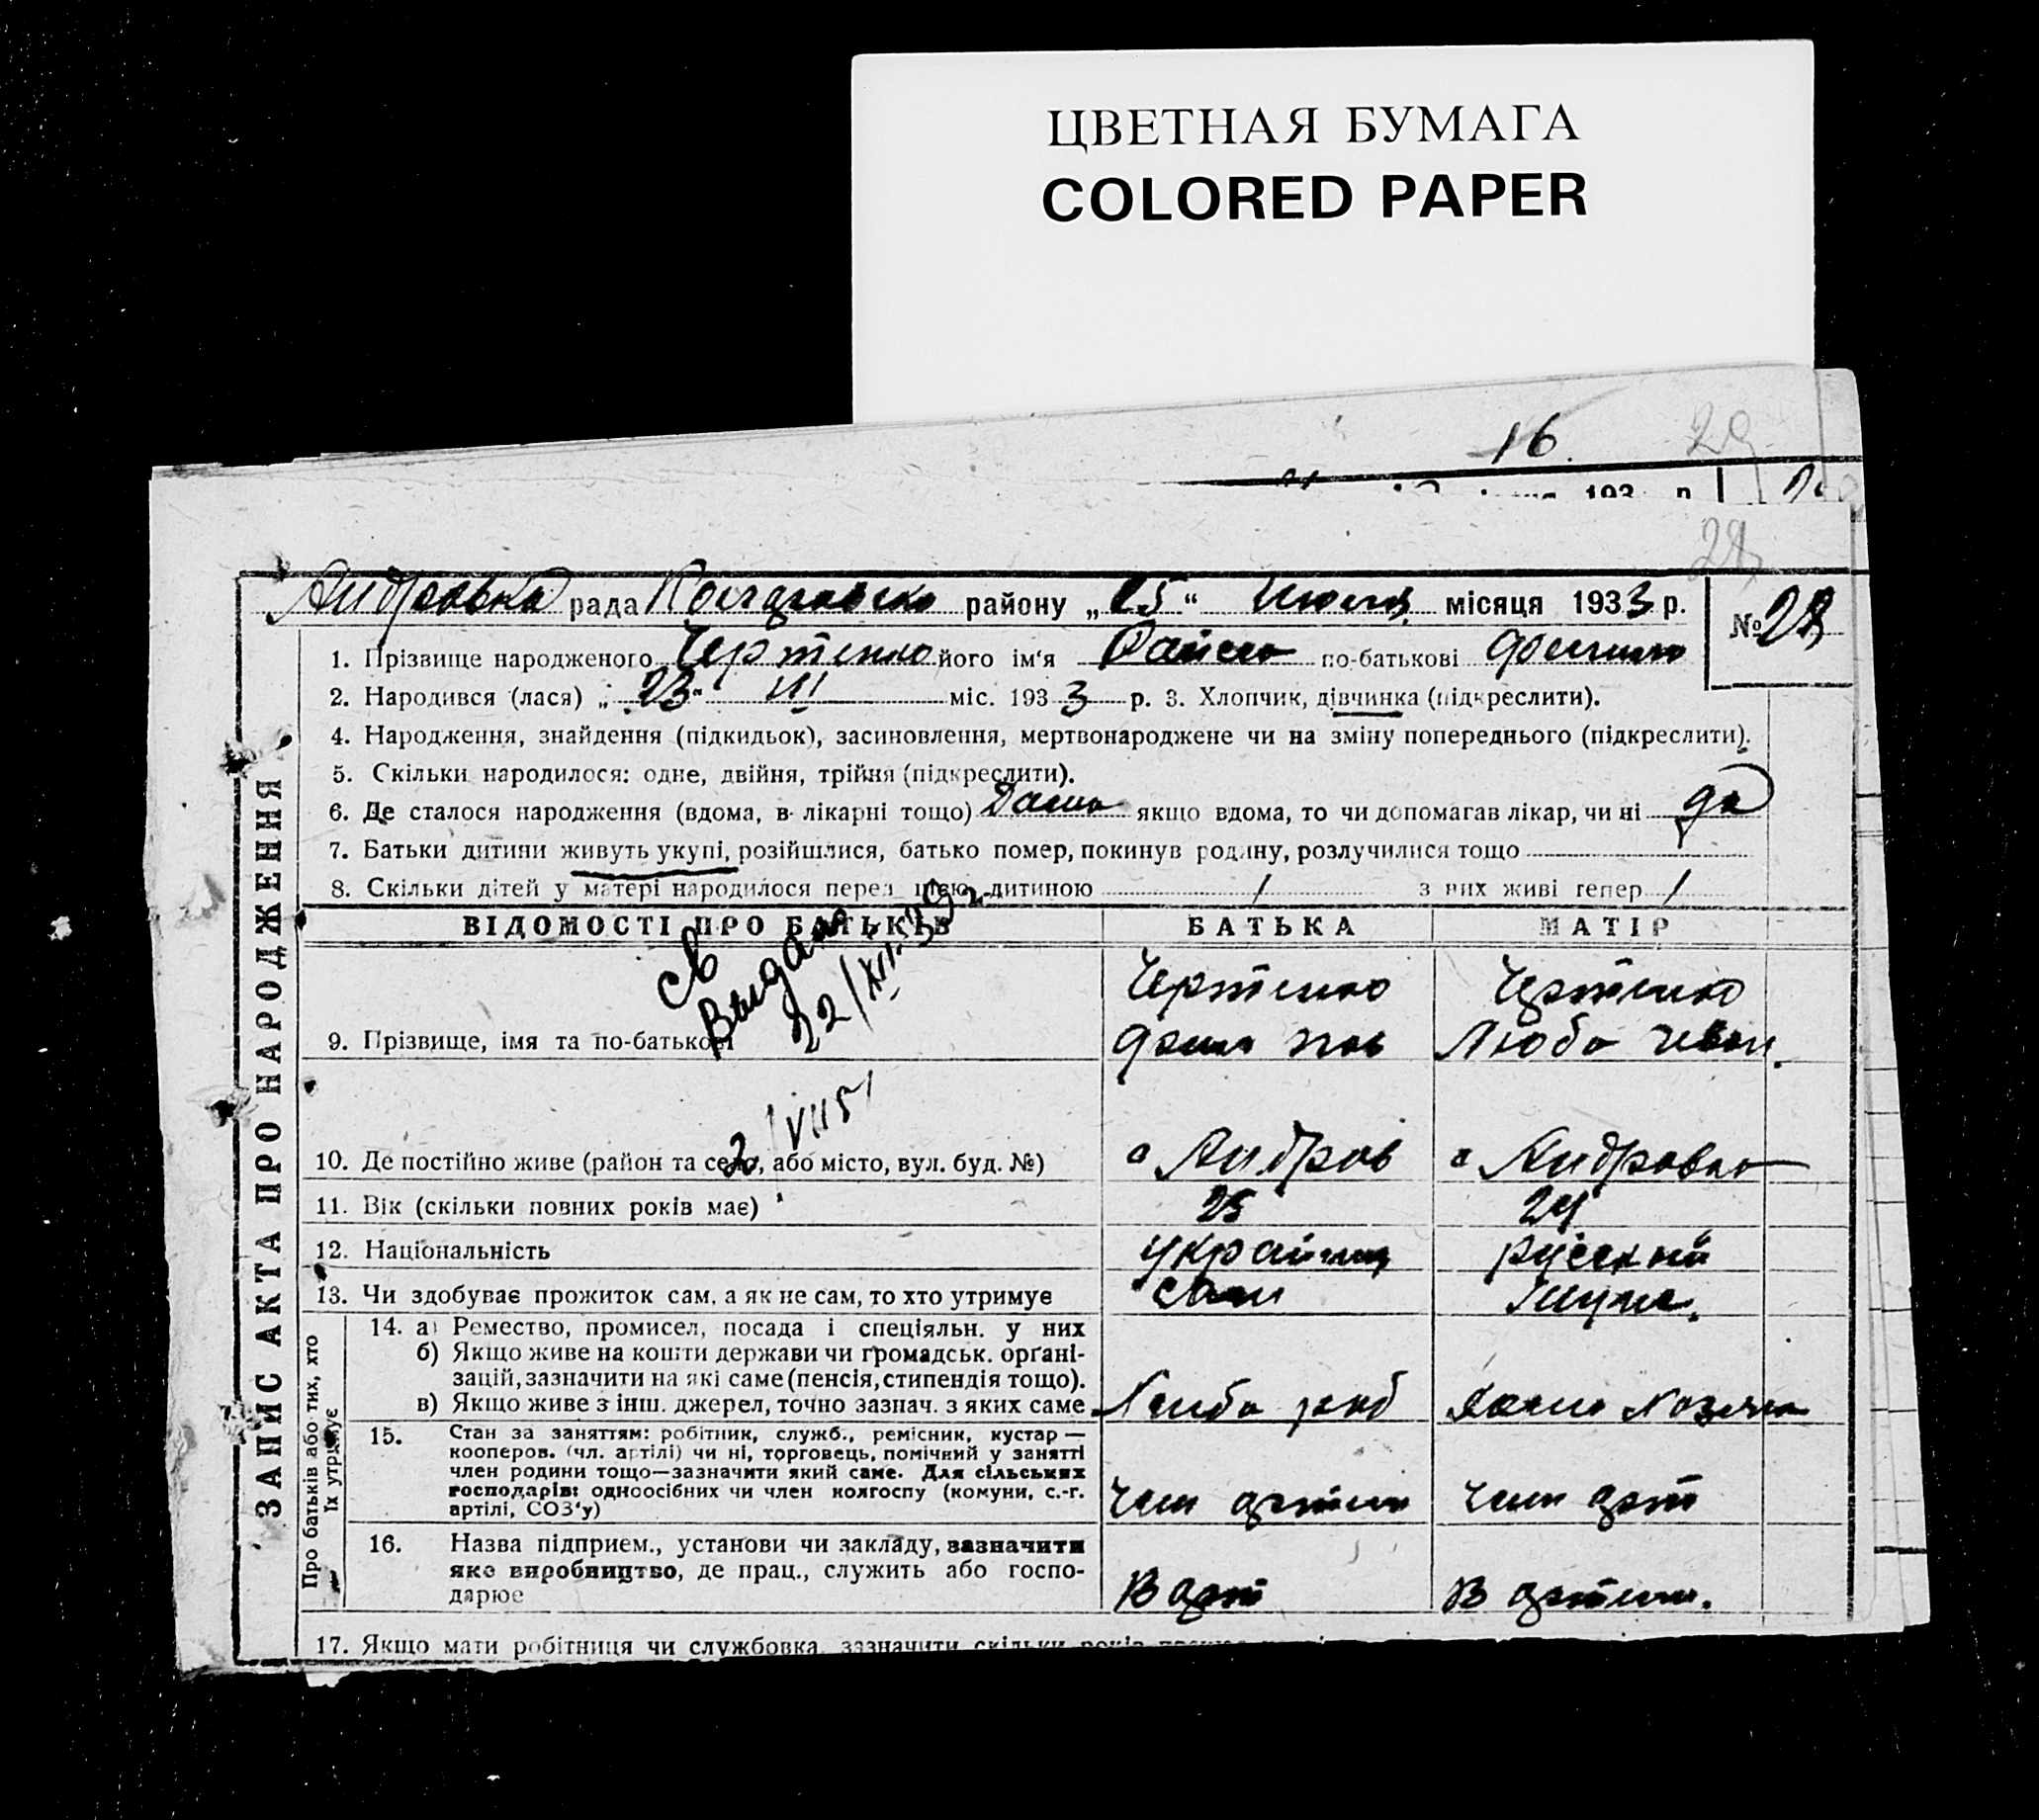 ЦВЕТНАЯ БУМАГА
COLORED PAPER
16. 29
193 р.
28
рада району „25“ місяця 1933 р.
№ 28
1. Прізвище народженого Чертенко його ім‘я Раиса по-батькові
2. Народився (лася) „23“ III міс. 1933 р. 3. Хлопчик, дівчинка (підкреслити).
4. Народження, знайдення (підкидьок), засиновлення, мертвонароджене чи на зміну попереднього (підкреслити).
5. Скільки народилося: одне, двійня, трійня (підкреслити).
6. Де сталося народження (вдома, в лікарні тощо) Дома якщо вдома, то чи допомагав лікар, чи ні да
7. Батьки дитини живуть укупі, розійшлися, батько помер, покинув родину, розлучилися тощо
8. Скільки дітей у матері народилося перед цією дитиною 1 з них живі тепер 1
ВІДОМОСТІ ПРО БАТЬКІВ БАТЬКА МАТІР
св
Выдано
22/XII-39 г.
Чертенко Чертенко
9. Прізвище, імя та по-батькові Люба Иван.
2/VII 51
10. Де постійно живе (район та село, або місто, вул. буд. №) с Андров с Андровка
11. Вік (скільки повних років має) 25 24
12. Національність украинец русский
13. Чи здобуває прожиток сам, а як не сам, то хто утримує сам
Про батьків або тих, хто їх утримує
14. а) Ремество, промисел, посада і спеціяльн. у них
б) Якщо живе на кошти держави чи громадськ. орґані-
зацій, зазначити на які саме (пенсія, стипендія тощо).
в) Якщо живе з інш. джерел, точно зазнач. з яких саме Хлибо роб Дома хозяйка
15. Стан за заняттям: робітник, служб., ремісник, кустар —
кооперов. (чл. артілі) чи ні, торговець, помічний у занятті
член родини тощо—зазначити який саме. Для сільських
господарів: одноосібних чи член колгоспу (комуни, с.-г.
артілі, СОЗ‘у) член артили член арт
16. Назва підприєм., установи чи закладу, зазначити
яке виробництво, де прац., служить або госпо-
дарює В арт В артили.
17. Якщо мати робітниця чи службовка, зазначити скільки років
ЗАПИС АКТА ПРО НАРОДЖЕННЯ